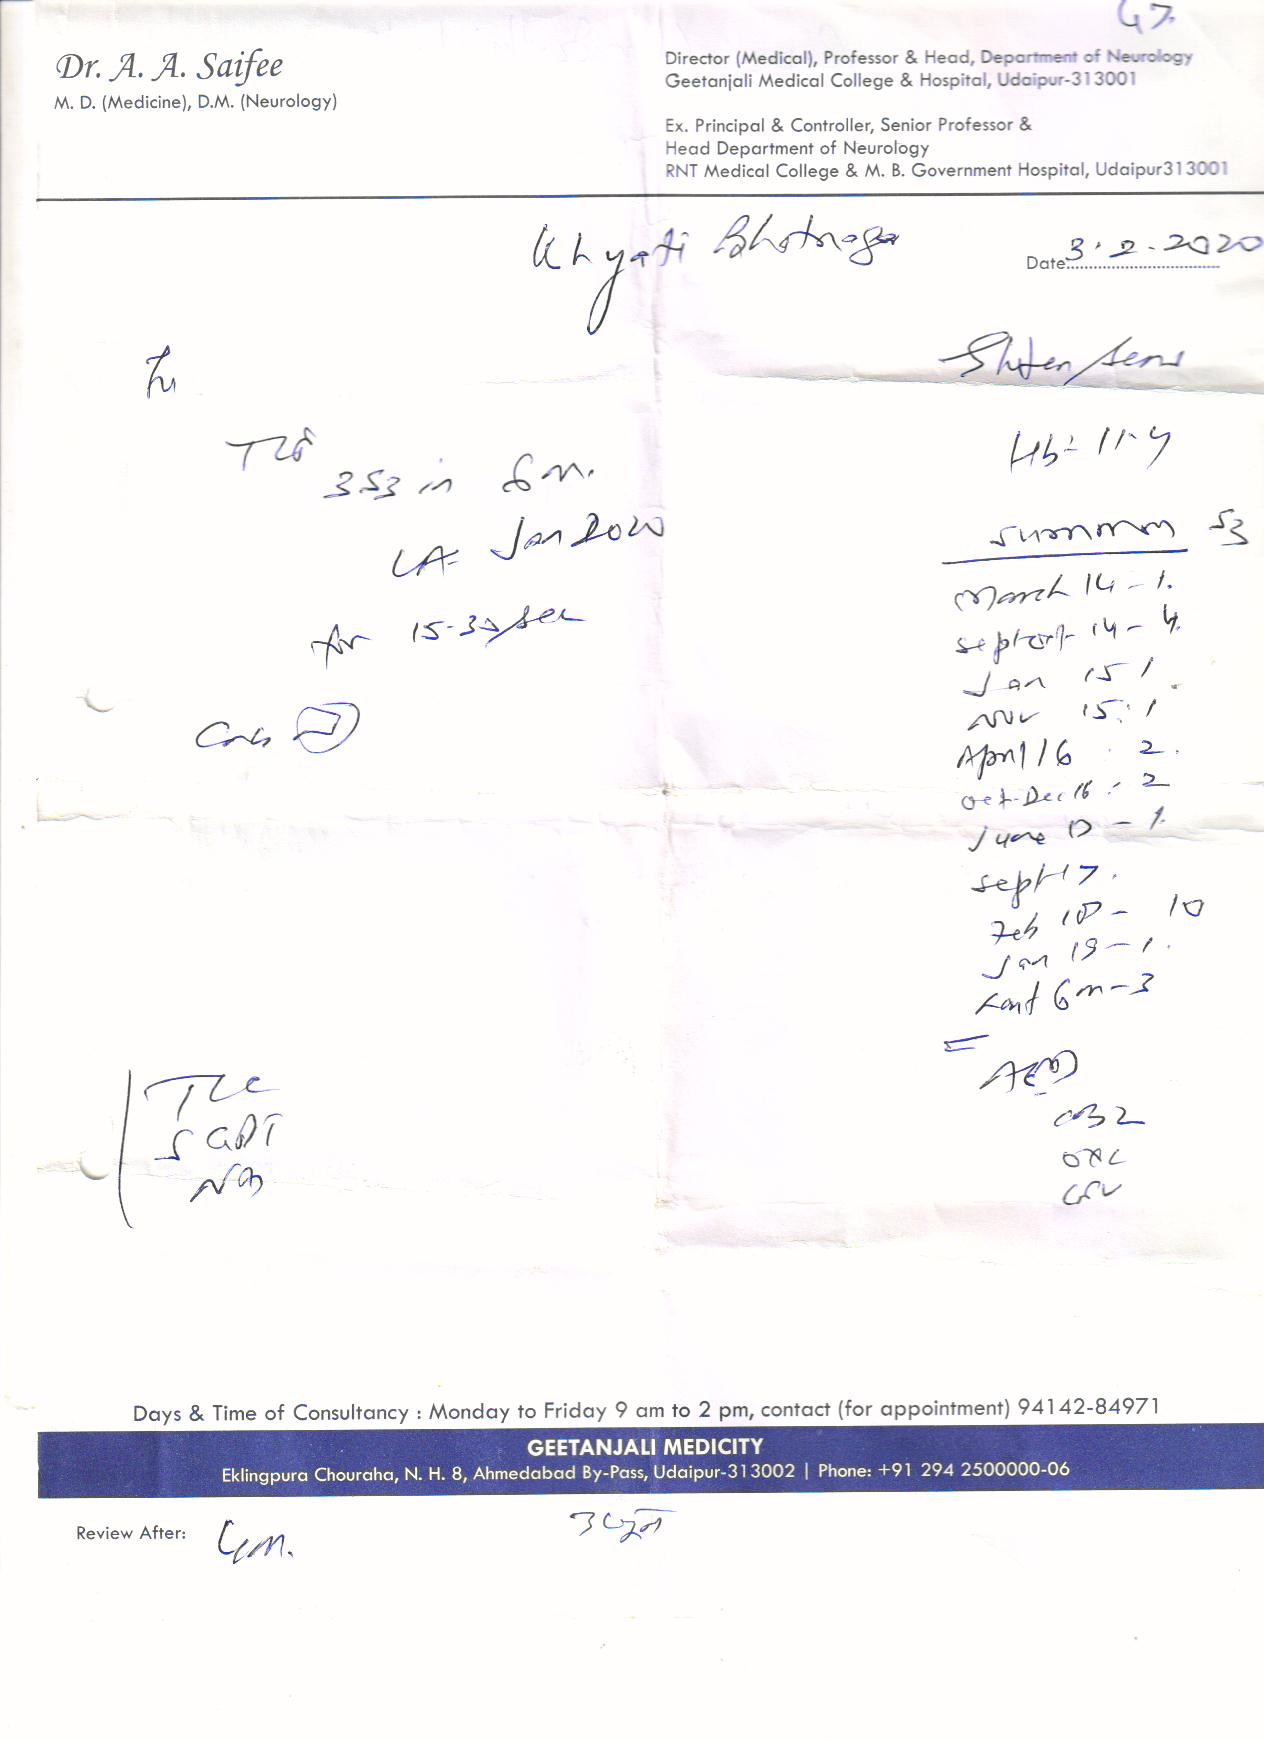 Dr. A. A. Saifee
M. D. (Medicine), D.M. (Neurology)
Director (Medical), Professor & Head, Department of Neurology
Geetanjali Medical College & Hospital, Udaipur-313001
Ex. Principal & Controller, Senior Professor &
Head Department of Neurology
RNT Medical College & M. B. Government Hospital, Udaipur313001
Khyati Bhatnagar
Date 3.2.2020
3 S3 in 6 m.
LA= Jan 2020
for 15-30/sec
TLC
SGPT
Hb= 11.4
Summary S3
March 14 - 1.
Sept-Oct 14 - 4.
Jan 15 1
Nov 15: 1
April 16 . 2.
Oct-Dec 16 : 2
June 17 - 1.
Sept 17.
Feb 18 - 10
Jan 19 - 1.
Last 6m - 3
AED
OXC
Days & Time of Consultancy : Monday to Friday 9 am to 2 pm, contact (for appointment) 94142-84971
GEETANJALI MEDICITY
Eklingpura Chouraha, N. H. 8, Ahmedabad By-Pass, Udaipur-313002 | Phone: +91 294 2500000-06
Review After: 4m.
3 जून